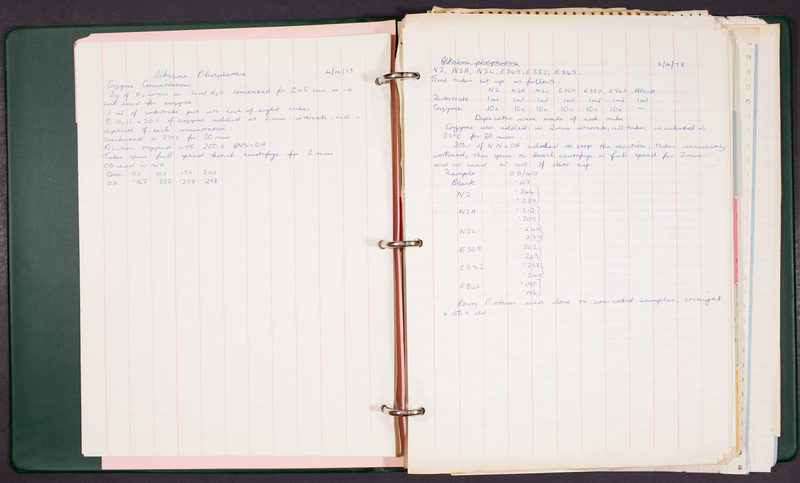 Alkaline Phosphatase 4/4/73
Enzyme Concentrations
2g of N2 worms in H2O sonicated for 2 x 5 secs in ice
and used for enzyme.
1 ml of substrate put into each of eight tubes
5, 10, 15 + 20 λ of enzyme added at 2 min intervals, with a
duplicate of each concentration
Incubated at 37°C for 30 min
Reaction stopped with 200 λ NaOH
Tubes spun full speed bench centrifuge for 2 mins
OD read at 410
Conc. 5λ 10λ 15λ 20λ
OD .162 .222 .258 .298
Alkaline phosphatase 5/4/73
N2, N2A, N2L, E369, E332, E365.
5ml tubes set up as follows.
N2 N2A N2L E369 E332 E365 Blank
Substrate 1ml 1ml 1ml 1ml 1ml 1ml 1ml
Enzyme 10λ 10λ 10λ 10λ 10λ 10λ —
Duplicates were made of each tube
Enzyme was added at 2min intervals, all tubes incubated at
37°C for 30 mins.
200λ of N NaOH added to stop the reaction, tubes immediately
vortexed, then spun on bench centrifuge at full speed for 2 min
and OD read at 410 of clear sup.
Sample O.D/410
Blank
N2 .246
.239
N2A .212
.205
N2L .240
.239
E369 .262
.263
E332
.240
E365 .190
Lowry Proteins were done on sonicated samples, straight
+ 100 x dil.